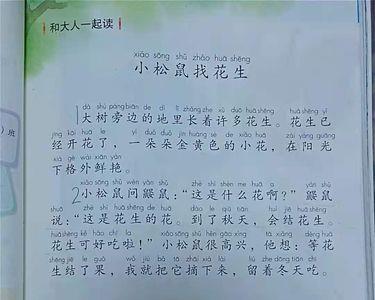 和大人一起读
xiǎo sōng shǔ zhǎo huā shēng
小松鼠找花生
dà shù páng biān de dì lǐ zhǎng zhe xǔ duō huā shēng huā shēng yǐ
1大树旁边的地里长着许多花生。花生已
）班
jīng kāi huā le yì duǒ duǒ jīn huáng sè de xiǎo huā zài yáng guāng
经开花了，一朵朵金黄色的小花，在阳光
xià gé wài xiān yàn
下格外鲜艳。
xiǎo sōng shǔ wèn yǎn shǔ zhè shì shén me huā a yǎn shǔ
2小松鼠问鼹鼠：“这是什么花啊？”鼹鼠
shuō zhè shì huā shēng de huā dào le qiū tiān huì jiē huā shēng
说：“这是花生的花。到了秋天，会结花生。
huā shēng kě hǎo chī la xiǎo sōng shǔ hěn gāo xìng tā xiǎng děng huā
花生可好吃啦！”小松鼠很高兴，他想：等花
shēng jiē le guǒ wǒ jiù bǎ tā zhāi xià lái liú zhe dōng tiān chī
生结了果，我就把它摘下来，留着冬天吃。